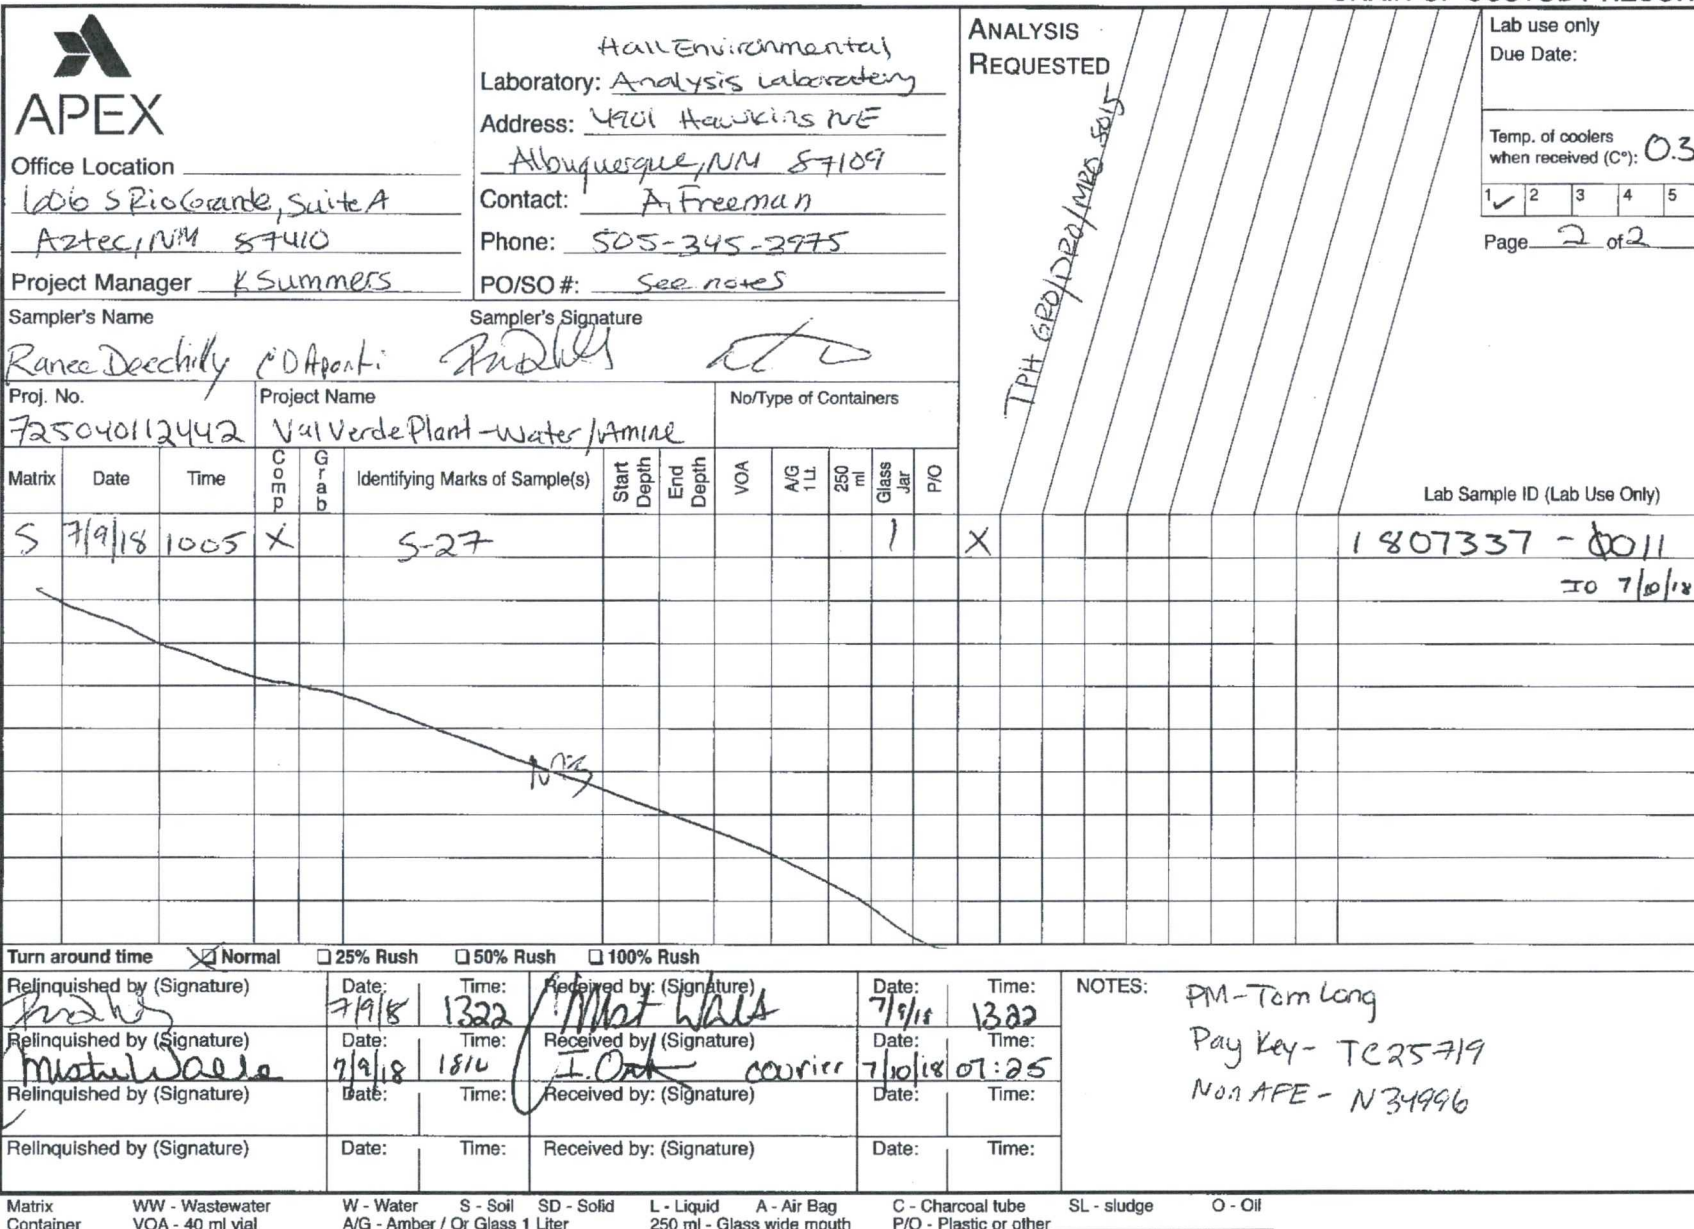 APEX
Office Location
606 S Rio Grande, Suite A
Aztec, NM 87410
Project Manager K Summers
Hall Environmental
Laboratory: Analysis Laboratory
Address: 4901 Hawkins NE
Albuquerque, NM 87109
Contact: A. Freeman
Phone: 505-345-3975
PO/SO #: See notes
ANALYSIS
REQUESTED
TPH GRO/DRO/MRO 8015
Lab use only
Due Date:
Temp. of coolers
when received (C°): 0.3
1 ✓ 2 3 4 5
Page 2 of 2
Sampler's Name
Sampler's Signature
Ranee Deechilly C D'Aponti
Proj. No.
725040112442
Project Name
Val Verde Plant - Water/Amine
No/Type of Containers
Matrix Date Time Comp Grab Identifying Marks of Sample(s) Start Depth End Depth VOA A/G 1 Lt. 250 ml Glass Jar P/O Lab Sample ID (Lab Use Only)
S 7/9/18 1005 X S-27 1 X 1807337 - 0011
IO 7/10/18
Turn around time Normal 25% Rush 50% Rush 100% Rush
Relinquished by (Signature) Date: Time: Received by: (Signature) Date: Time:
7/9/18 1322 7/9/18 1322
Relinquished by (Signature) Date: Time: Received by: (Signature) Date: Time:
7/9/18 1816 courier 7/10/18 07:25
Relinquished by (Signature) Date: Time: Received by: (Signature) Date: Time:
Relinquished by (Signature) Date: Time: Received by: (Signature) Date: Time:
NOTES: PM - Tom Long
Pay Key - TC25719
Non AFE - N34996
Matrix WW - Wastewater W - Water S - Soil SD - Solid L - Liquid A - Air Bag C - Charcoal tube SL - sludge O - Oil
Container VOA - 40 ml vial A/G - Amber / Or Glass 1 Liter 250 ml - Glass wide mouth P/O - Plastic or other